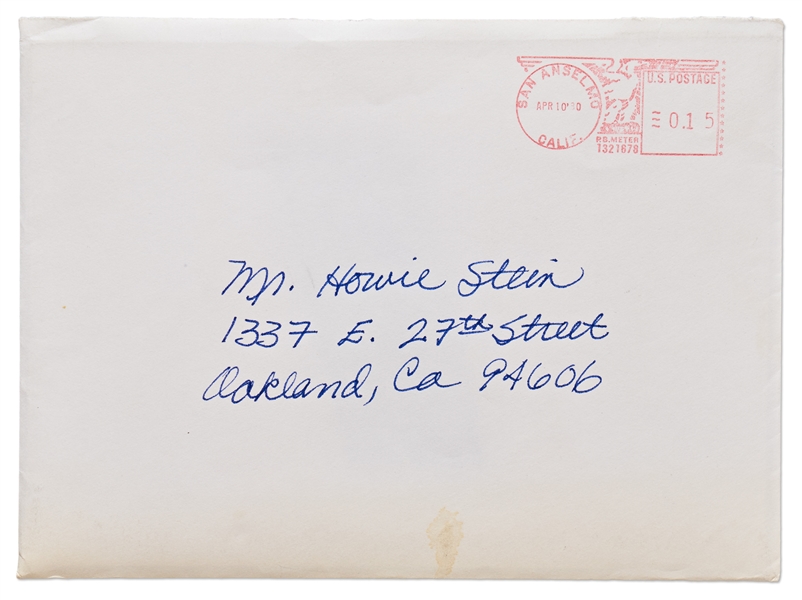 SAN ANSELMO
APR 10'80
CALIF.
P.B. METER
1321678
U.S. POSTAGE
0.15
Mr. Howie Stein
1337 E. 27th Street
Oakland, Ca 94606